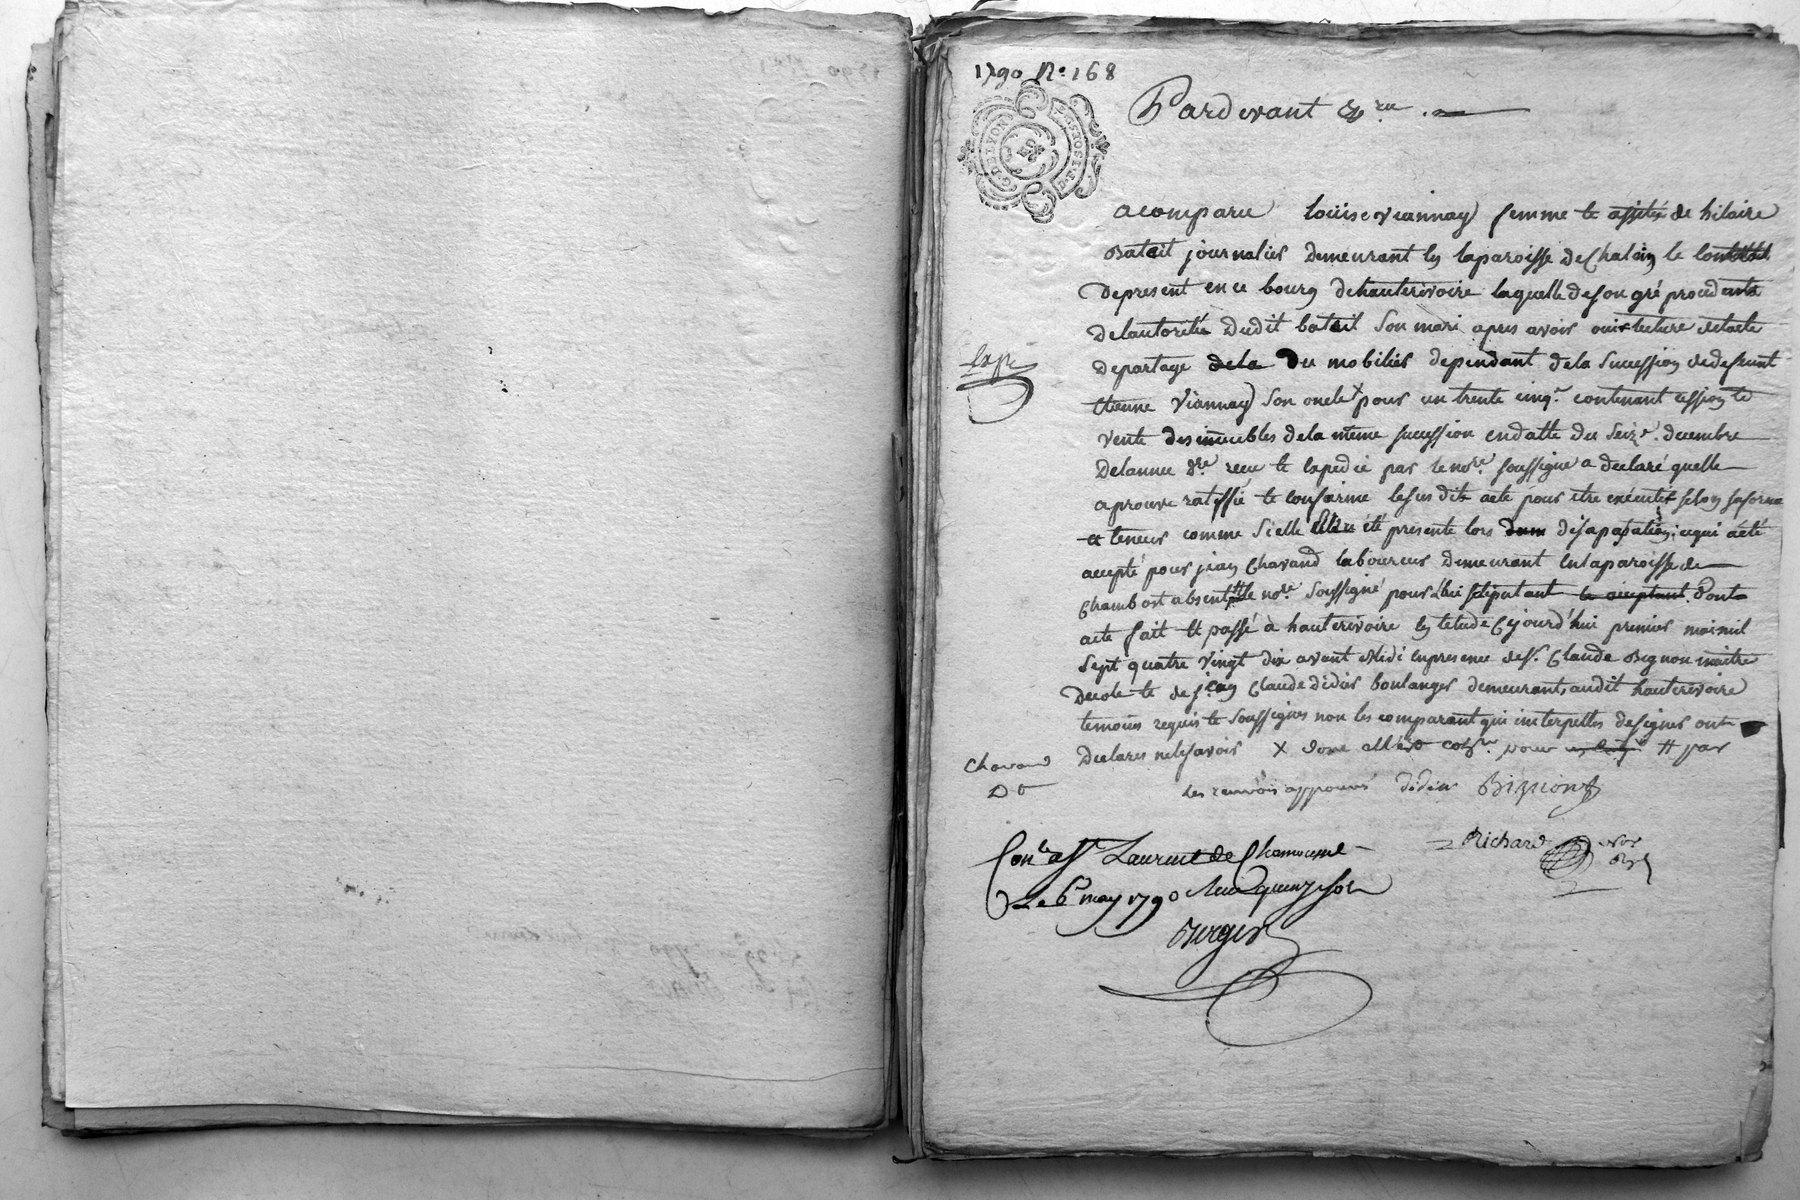 1790 N.o 168
G. DE LYON
Pardevant &.ra
acomparu Loüise Viannay femme et assistée de hilaire
Batait journalier demeurant en laparoisse de Chalain le
depresent en ce bourg dehauterivoire laquelle deson gré procedante
delautorité dudit batait son mari apres avoir ouis lecture delacte
expé
departage dela du mobilier dependant dela sucession dedefeunt
Etienne Viannay son oncle x pour un trente cinq.e contenant cession et
vente desimeubles dela même sucession endatte du seize. decembre
delannee d.re recu et expedié par leno.re soussigné a declaré quelle
aprouve ratiffie et confirme lesus dit acte pour etre executé selon saforme
et teneur comme sielle été presente lors desapassation, cequi aété
accepté pour jean Chavand laboureur demeurant enlaparoisse de
Chambost absent # le no.re soussigné pour lui stipulant le aceptant. Dont
acte fait et passé à hauterivoire en letude Cejourd'hui premier mai mil
sept quatre vingt dix avant Midi enpresence des.r Claude Bignon maitre
decole et de jean Claude didier boulanger demeurants audit hauterivoire
temoins requis et soussignes non les comparant qui interpelles designer ont
declarés nelesavoir x pour # par
Chavand
D t
les renvois approuvés didier Bignion
Richard no.re
Con.lé à S.t Laurent de Chamousset
Le 6 may 1790 Recu quinze sols
Berger